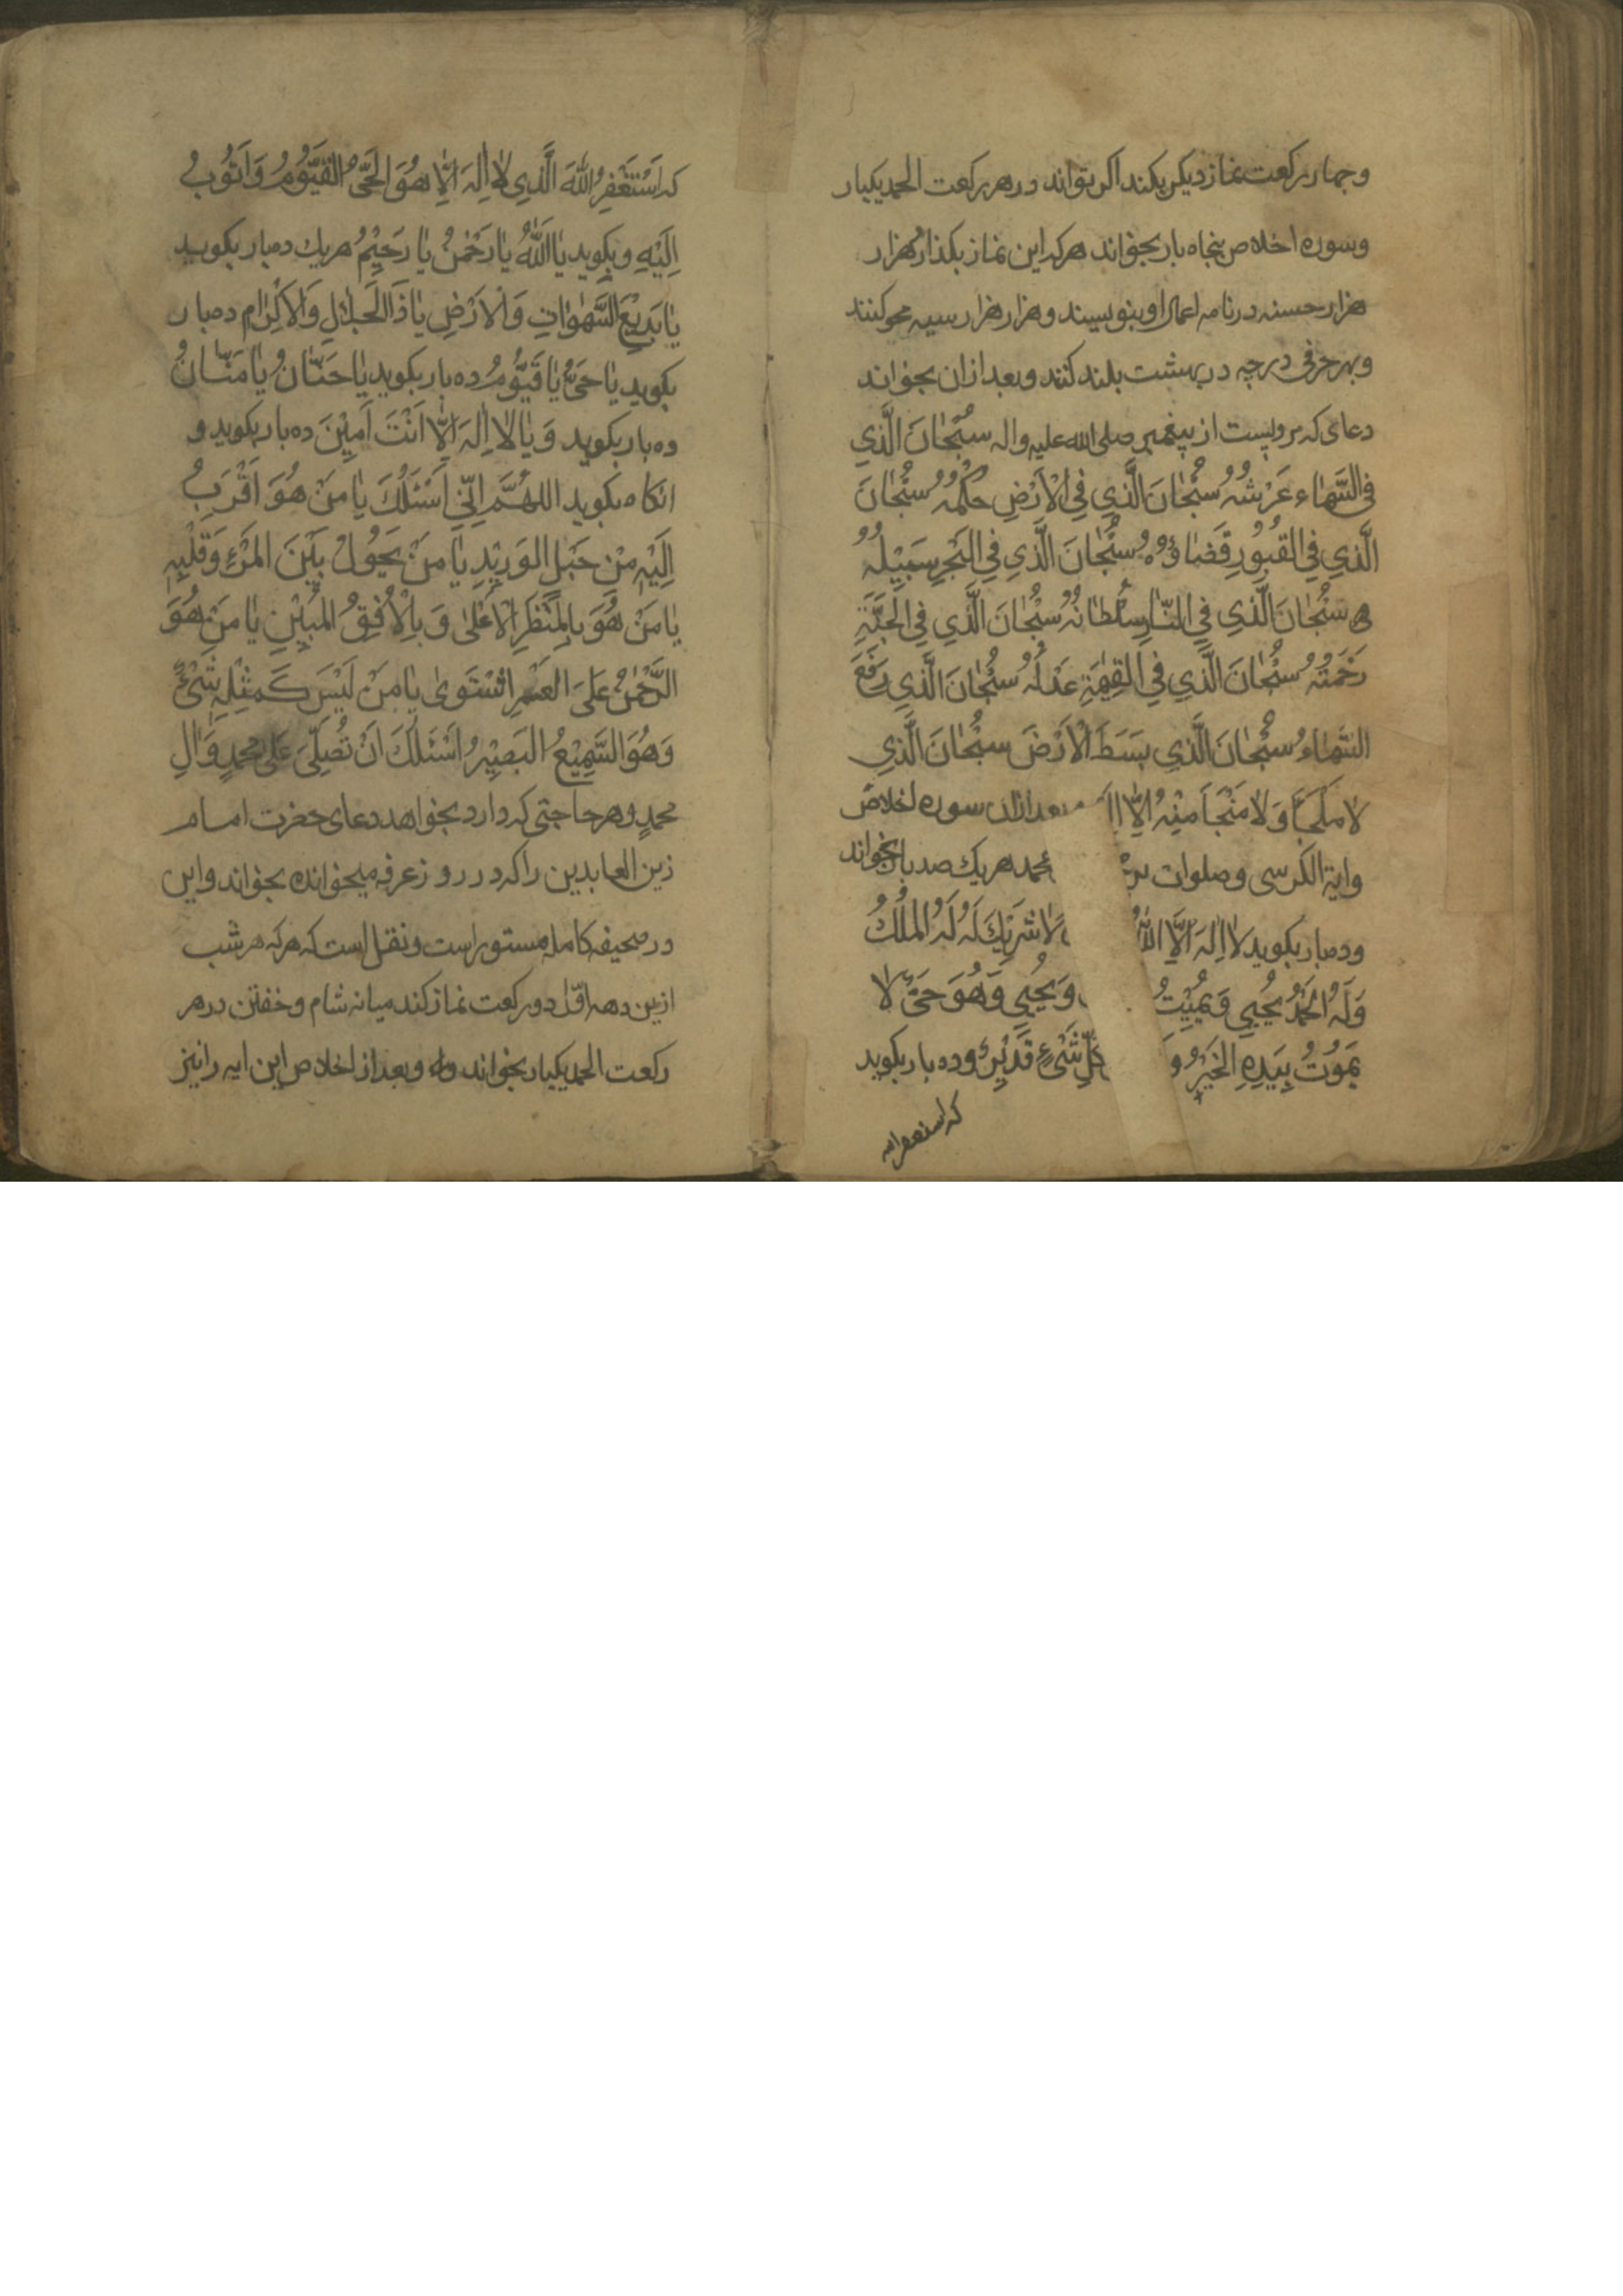 وچهار رکعت نماز دیکر بکند اکر تواند در هر رکعت الحمد یکبار
وسوره اخلاص پنجاه بار بخواند هرکه این نماز بکذارد هزار
هزار حسنه در نامه اعمال او بنویسند و هزار هزار سیه محو کنند
وبهر حرفی درجه در بهشت بلند کنند و بعد ازان بخواند
دعای که مرویست از پیغمبر صلی الله علیه واله سُبْحٰانَ الَّذِي
فِي السَّمٰاءِ عَرْشُهُ سُبْحٰانَ الَّذِي فِي الْاَرْضِ حُكْمُهُ سُبْحٰانَ
الَّذِي فِي القُبُورِ قَضٰاؤُهُ سُبْحٰانَ الَّذِي فِي البَحْرِ سَبِيْلُهُ
سُبْحٰانَ الَّذِي فِي النّٰارِ سُلْطٰانُهُ سُبْحٰانَ الَّذِي فِي الْجَنَّةِ
رَحْمَتُهُ سُبْحٰانَ الَّذِي فِي القِيٰمَةِ عَدْلُهُ سُبْحٰانَ الَّذِي رَفَعَ
السَّمٰاءَ سُبْحٰانَ الَّذِي بَسَطَ الْاَرْضَ سُبْحٰانَ الَّذِي
لٰا مَلْجَأَ وَلٰا مَنْجَا مِنْهُ اِلّٰا بعد ازان سوره اخلاص
واية الكرسى وصلوات بر محمد هریك صد بار بخواند
و ده بار بکوید لٰا اِلٰهَ اِلَّا اللّٰهُ لٰا شَرِيْكَ لَهُ لَهُ المُلْكُ
وَلَهُ الحَمْدُ يُحْيِي وَيُمِيْتُ وَيُحْيِي وَهُوَ حَيٌّ لٰا
يَمُوْتُ بِيَدِهِ الخَيْرُ وَ كُلِّ شَيْءٍ قَدِيْرٌ و ده بار بکوید
که استغفرالله
که اَسْتَغْفِرُ اللّٰهَ الَّذِي لٰا اِلٰهَ اِلّٰا هُوَ الْحَيُّ القَيُّوْمُ وَاَتُوْبُ
اِلَيْهِ و بکوید يٰا اَللّٰهُ يٰا رَحْمٰنُ يٰا رَحِيْمُ هریك ده بار بکوید
يٰا بَدِيْعَ السَّمٰوٰاتِ وَالْاَرْضِ يٰا ذَا الْجَلٰالِ وَالْاِكْرٰامِ ده بار
بکوید يٰا حَيُّ يٰا قَيُّوْمُ ده بار بکوید يٰا حَنّٰانُ يٰا مَنّٰانُ
ده بار بکوید وَ يٰا لٰا اِلٰهَ اِلّٰا اَنْتَ اٰمِيْنَ ده بار بکوید و
انکاه بکوید اللهُمَّ اِنِّي اَسْئَلُكَ يٰا مَنْ هُوَ اَقْرَبُ
اِلَيْهِ مِنْ حَبْلِ الوَرِيْدِ يٰا مَنْ يَحُوْلُ بَيْنَ المَرْءِ وَقَلْبِهِ
يٰا مَنْ هُوَ بِالمَنْظَرِ الْاَعْلٰى وَ بِالْاُفُقِ المُبِيْنِ يٰا مَنْ هُوَ
الرَّحْمٰنُ عَلَى العَرْشِ اسْتَوىٰ يٰا مَنْ لَيْسَ كَمِثْلِهِ شَيْءٌ
وَهُوَ السَّمِيْعُ البَصِيْرُ اَسْئَلُكَ اَنْ تُصَلِّيَ عَلٰى مُحَمَّدٍ وَاٰلِ
محمدٍ و هر حاجتی که دارد بخواهد دعای حضرت امام
زین العابدین را که در روز عرفه میخوانده بخواند و این
در صحیفه کامله مستور است و نقل است که هرکه هر شب
ازین دهه اوّل دو رکعت نماز کند میانه شام و خفتن در هر
رکعت الحمد یکبار بخواند و بعد از اخلاص این ایه را نیز